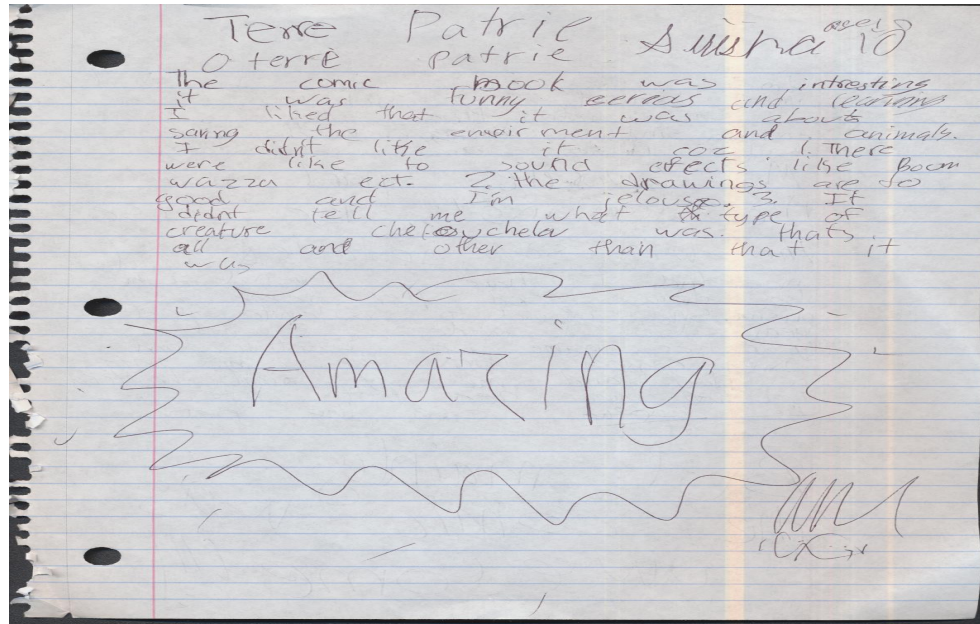 Terre Patrie
age: 10
O terre patrie
The comic book was intresting
it was funny eerioas and learning
I liked that it was about
saving the enveirment and animals.
I didnt like it coz 1. There
were like to sound efects like Boom
wazza ect. 2. the drawings are so
good and I'm jelous. 3. It
didnt tell me what type of
creature chelouchelou was. thats
all and other than that it
was
Amazing